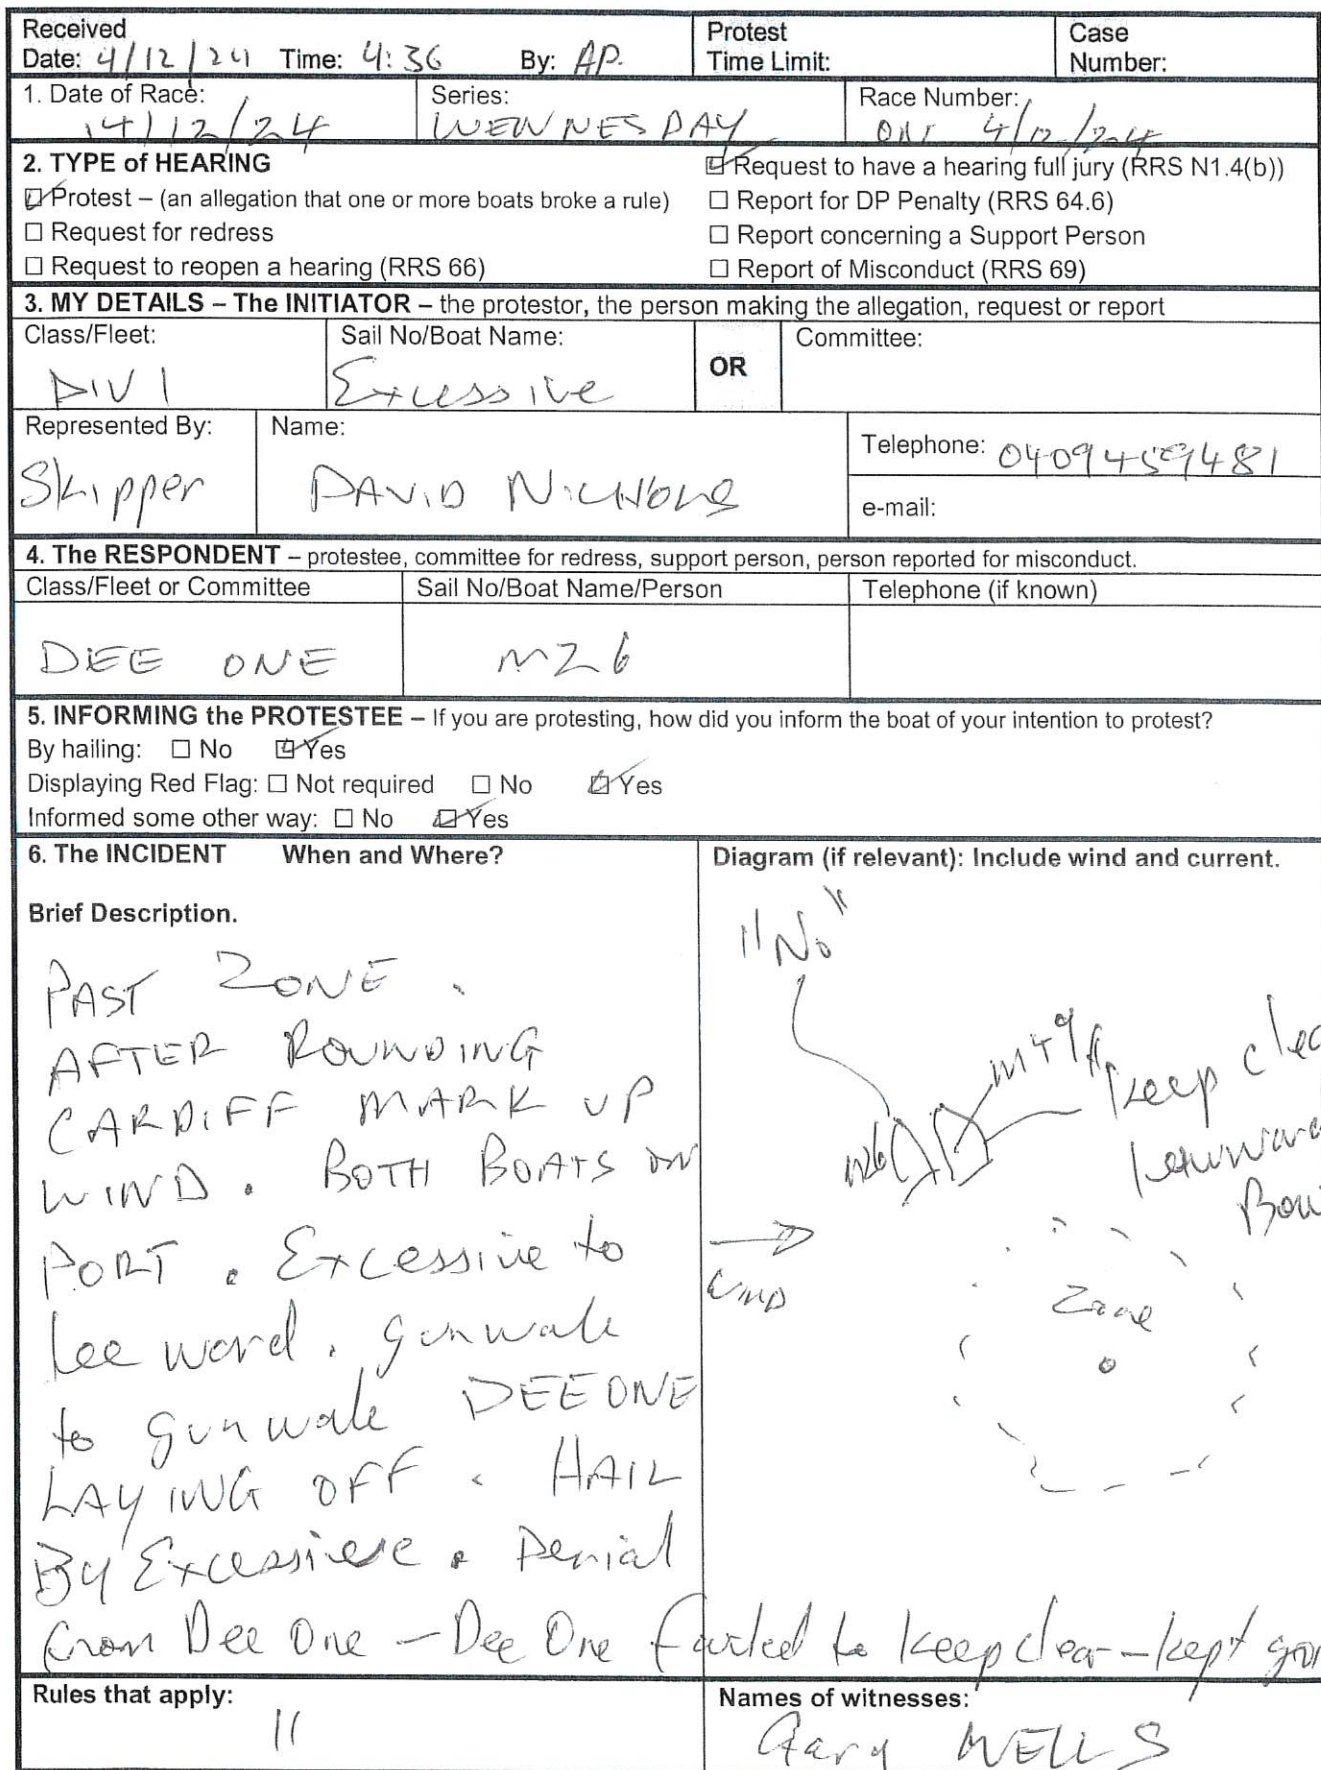 Received
Date: 4/12/24 Time: 4:36 By: AP.
Protest
Time Limit:
Case
Number:
1. Date of Race:
4/12/24
Series:
WEWNESDAY
Race Number:
ON 4/12/24
2. TYPE of HEARING
Protest – (an allegation that one or more boats broke a rule)
☐ Request for redress
☐ Request to reopen a hearing (RRS 66)
Request to have a hearing full jury (RRS N1.4(b))
☐ Report for DP Penalty (RRS 64.6)
☐ Report concerning a Support Person
☐ Report of Misconduct (RRS 69)
3. MY DETAILS – The INITIATOR – the protestor, the person making the allegation, request or report
Class/Fleet:
DIV 1
Sail No/Boat Name:
Excessive
OR
Committee:
Represented By:
Skipper
Name:
DAVID
Telephone: 0409459481
e-mail:
4. The RESPONDENT – protestee, committee for redress, support person, person reported for misconduct.
Class/Fleet or Committee
Sail No/Boat Name/Person
Telephone (if known)
DEE ONE
M26
5. INFORMING the PROTESTEE – If you are protesting, how did you inform the boat of your intention to protest?
By hailing: ☐ No ☑ Yes
Displaying Red Flag: ☐ Not required ☐ No ☑ Yes
Informed some other way: ☐ No ☑ Yes
6. The INCIDENT When and Where?
Brief Description.
PAST ZONE.
AFTER ROUNDING
CARDIFF MARK UP
WIND. BOTH BOATS ON
PORT. Excessive to
leeward. gunwale
to gunwale DEE ONE
LAYING OFF. HAIL
By Excessive. Denial
from Dee One – Dee One failed to keep clear – kept
Diagram (if relevant): Include wind and current.
"No"
M26
keep
WIND
Zone
Rules that apply:
11
Names of witnesses:
Gary WELLS